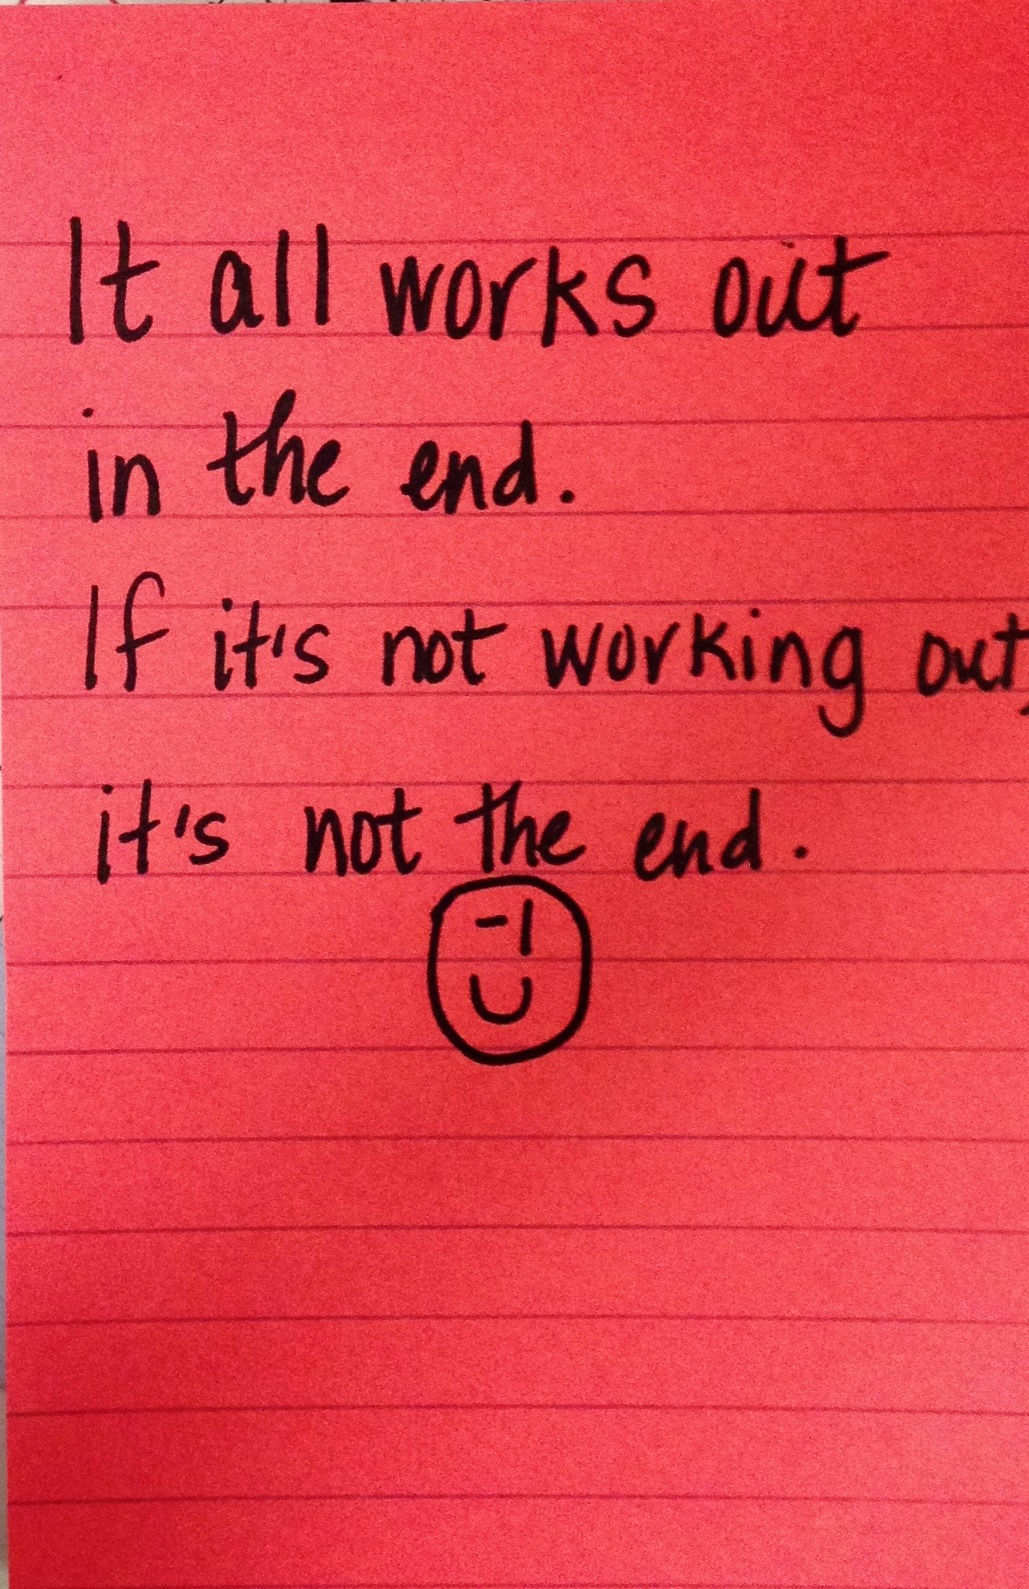 It all works out
in the end.
If it's not working out,
it's not the end.